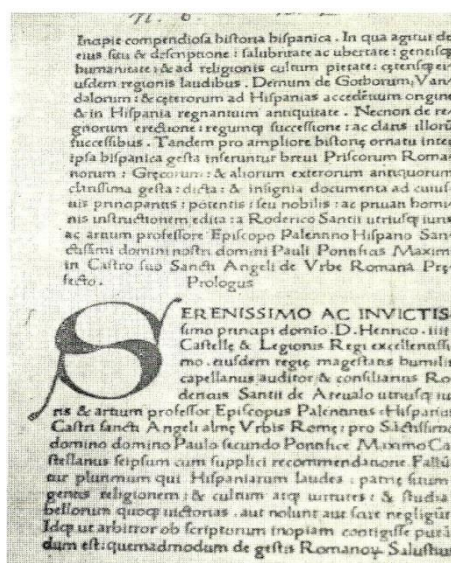 Incipit compendiosa historia hispanica. In qua agitur de
eius situ & descriptione: salubritate ac ubertate: gentisq;
humanitate: & ad religionis cultum pietate: ceterisq; ei
usdem regionis laudibus. Demum de Gothorum, Van
dalorum: & ceterorum ad Hispanias accedentium origine
& in Hispania regnantium antiquitate. Necnon de re
gnorum erectione: regumq; successione: ac claris illorū
successibus. Tandem pro ampliore historie ornatu inter
ipsa hispanica gesta inseruntur breui Priscorum Roma
norum: Grecorum: & aliorum exterorum antiquorum
clarissima gesta: dicta: & insignia documenta ad cuius
uis principantis: potentis: seu nobilis: ac priuati homi
nis instructionem edita: a Roderico Santii utriusq; iuris
ac artium professore Episcopo Palentino Hispano San
ctissimi domini nostri domini Pauli Pontificis Maximi
in Castro suo Sancti Angeli de Vrbe Romana Pre
fecto. Prologus
SERENISSIMO AC INVICTIS
simo principi domio. D. Henrico. iiii
Castelle & Legionis Regi excellentissi
mo. eiusdem regie magestatis humilis
capellanus auditor & consiliarius Ro
dericus Santii de Areualo utriusq; iu
ris & artium professor Episcopus Palentinus: Hispanus
Castri sancti Angeli alme Vrbis Rome: pro Sāctissimo
domino domino Paulo secundo Pontifice Maximo Ca
stellanus seipsum cum supplici recommendatione. Fallū
tur plurimum qui Hispaniarum laudes: patrie situm
gentis religionem: & cultum atq; uirtutes: & studia
bellorum quoq; uictorias. aut nolunt aut scire negligūt
Idq; ut arbitror ob scriptorum inopiam contigisse putā
dum est: quemadmodum de gestis Romanoꝝ Salustius